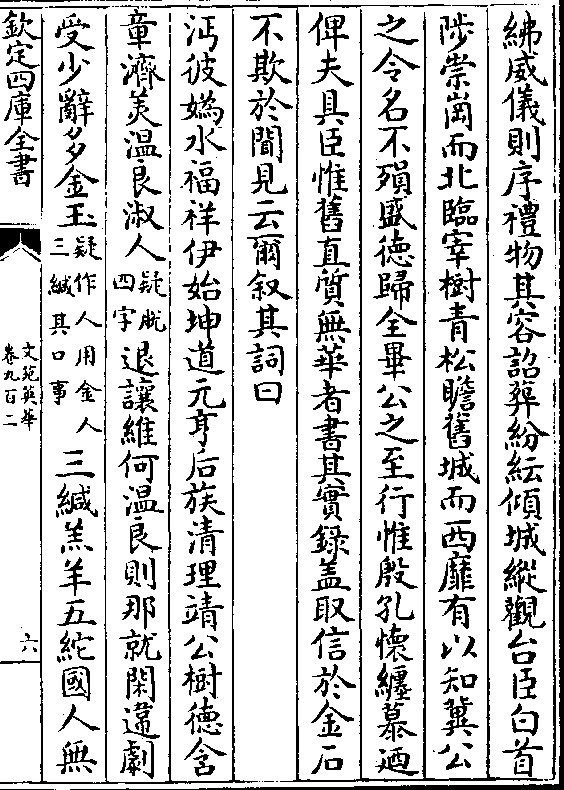 紼威儀則序禮物其容詔葬紛紜傾城縱觀台臣白首
陟崇崗而北臨宰樹青松瞻舊城而西靡有以知冀公
之令名不殞盛德歸全畢公之至行惟殷孔懷纏慕迺
俾夫具臣惟舊直質無華者書其實錄盖取信於金石
不欺於聞見云爾叙其詞曰
沔彼嬀水福祥伊始坤道元亨后族清理靖公樹德含
章濟美温良淑人疑脱四字退讓維何温良則那就閑違劇
受少辭多金玉疑作人用金人三緘其口事三緘羔羊五紽國人無
欽定四庫全書
文苑英華
卷九百二
六